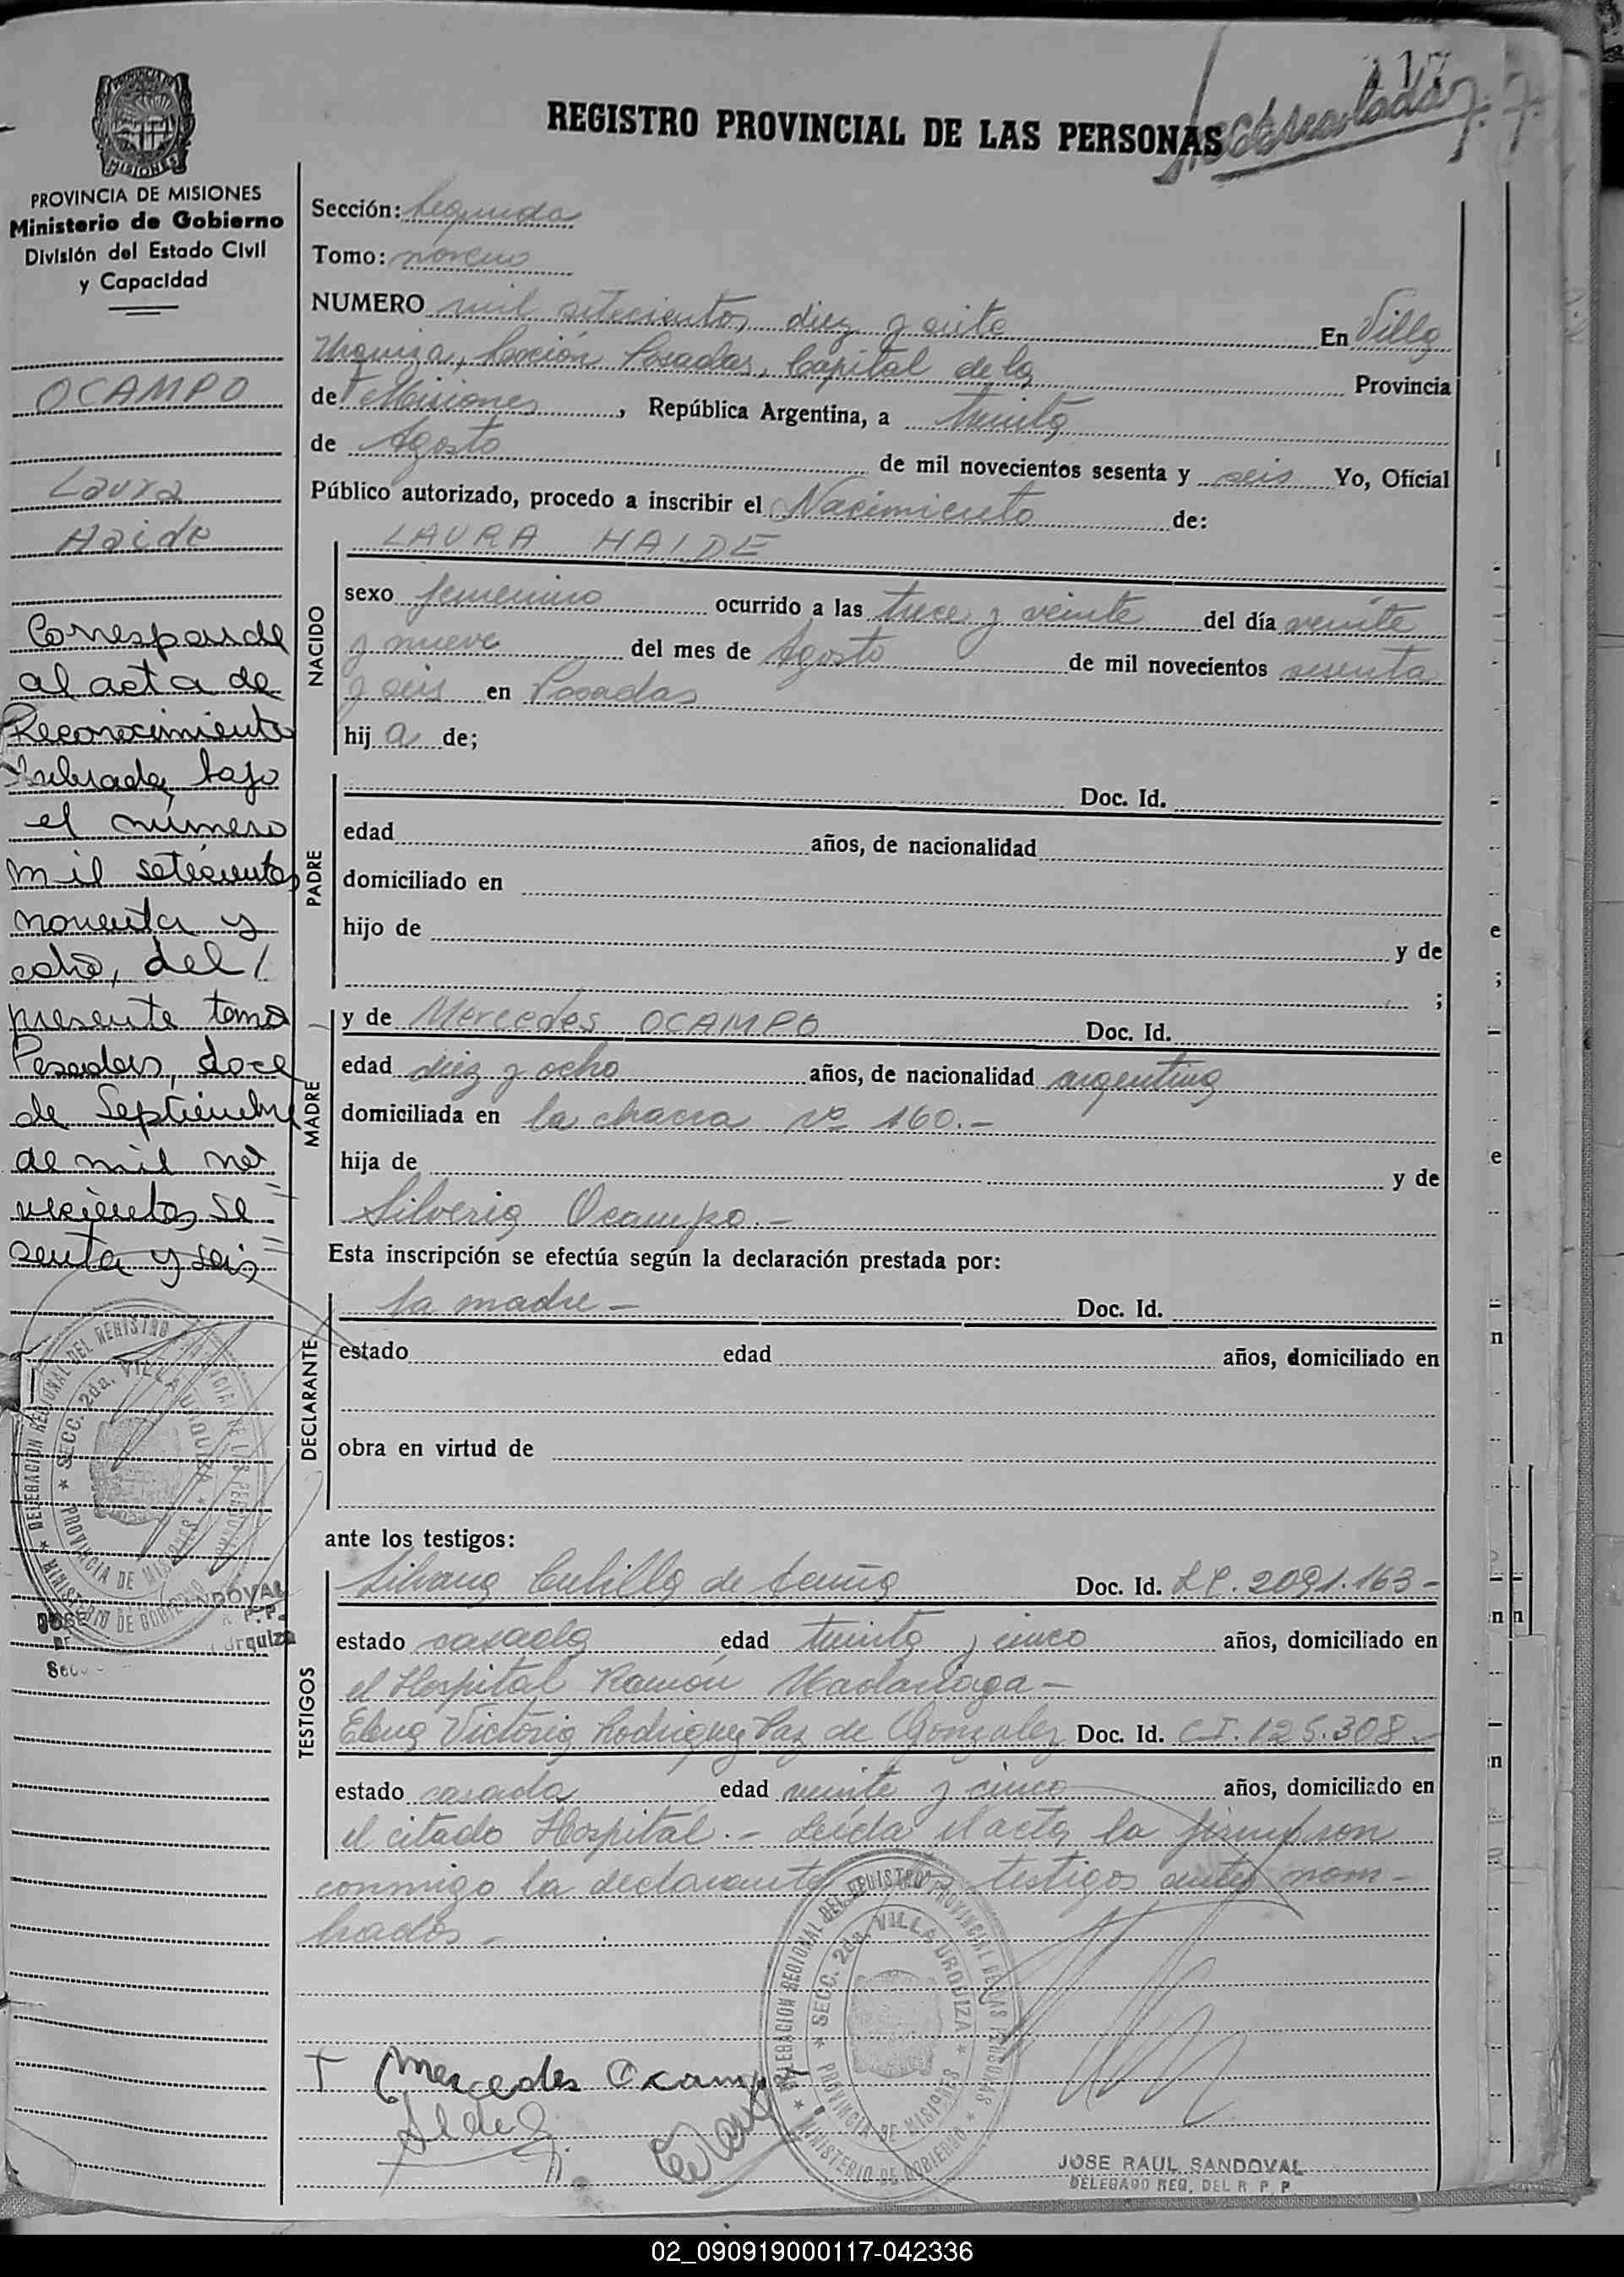 117
REGISTRO PROVINCIAL DE LAS PERSONAS
PROVINCIA DE MISIONES
Ministerio de Gobierno
División del Estado Civil
y Capacidad
OCAMPO
Laura
Aide
Corresponde
al acta de
Reconocimiento
labrada bajo
el número
mil setecientos
noventa y
ocho, del /
presente tomo
Posadas, doce
de Septiembre
de mil no=
vecientos se=
senta y seis=
Sección: Segunda
Tomo: noveno
NUMERO mil setecientos diez y siete En Villa
Urquiza, Sección Posadas, Capital de la Provincia
de Misiones, República Argentina, a treinta
de Agosto de mil novecientos sesenta y seis Yo, Oficial
Público autorizado, procedo a inscribir el Nacimiento de:
NACIDO
LAURA HAIDE
sexo femenino ocurrido a las trece y veinte del día veinte
y nueve del mes de Agosto de mil novecientos sesenta
y seis en Posadas
hija de;
PADRE
Doc. Id.
edad años, de nacionalidad
domiciliado en
hijo de y de
;
MADRE
y de Mercedes OCAMPO Doc. Id.
edad diez y ocho años, de nacionalidad argentina
domiciliada en la chacra Nº 160.-
hija de y de
Silveria Ocampo.-
Esta inscripción se efectúa según la declaración prestada por:
DECLARANTE
la madre - Doc. Id.
estado edad años, domiciliado en
obra en virtud de
ante los testigos:
TESTIGOS
Silvana de Doc. Id. L.C. 2091.163-
estado casada edad treinta y cinco años, domiciliado en
el Hospital Ramón Madariaga-
Elena Victoria Rodriguez Paz de Gonzalez Doc. Id. C.I. 125.308-
estado casada edad veinte y cinco años, domiciliado en
el citado Hospital.- Leída el acta la firman con
conmigo la declarante testigos antes nom-
brados-
Mercedes Ocampo
DELEGACION REGIONAL DEL REGISTRO PROVINCIAL DE LAS PERSONAS
SECC. 2da. VILLA URQUIZA
PROVINCIA DE MISIONES
MINISTERIO DE GOBIERNO
JOSE RAUL SANDOVAL
DELEGADO REG. DEL R. P. P.
02_090919000117-042336